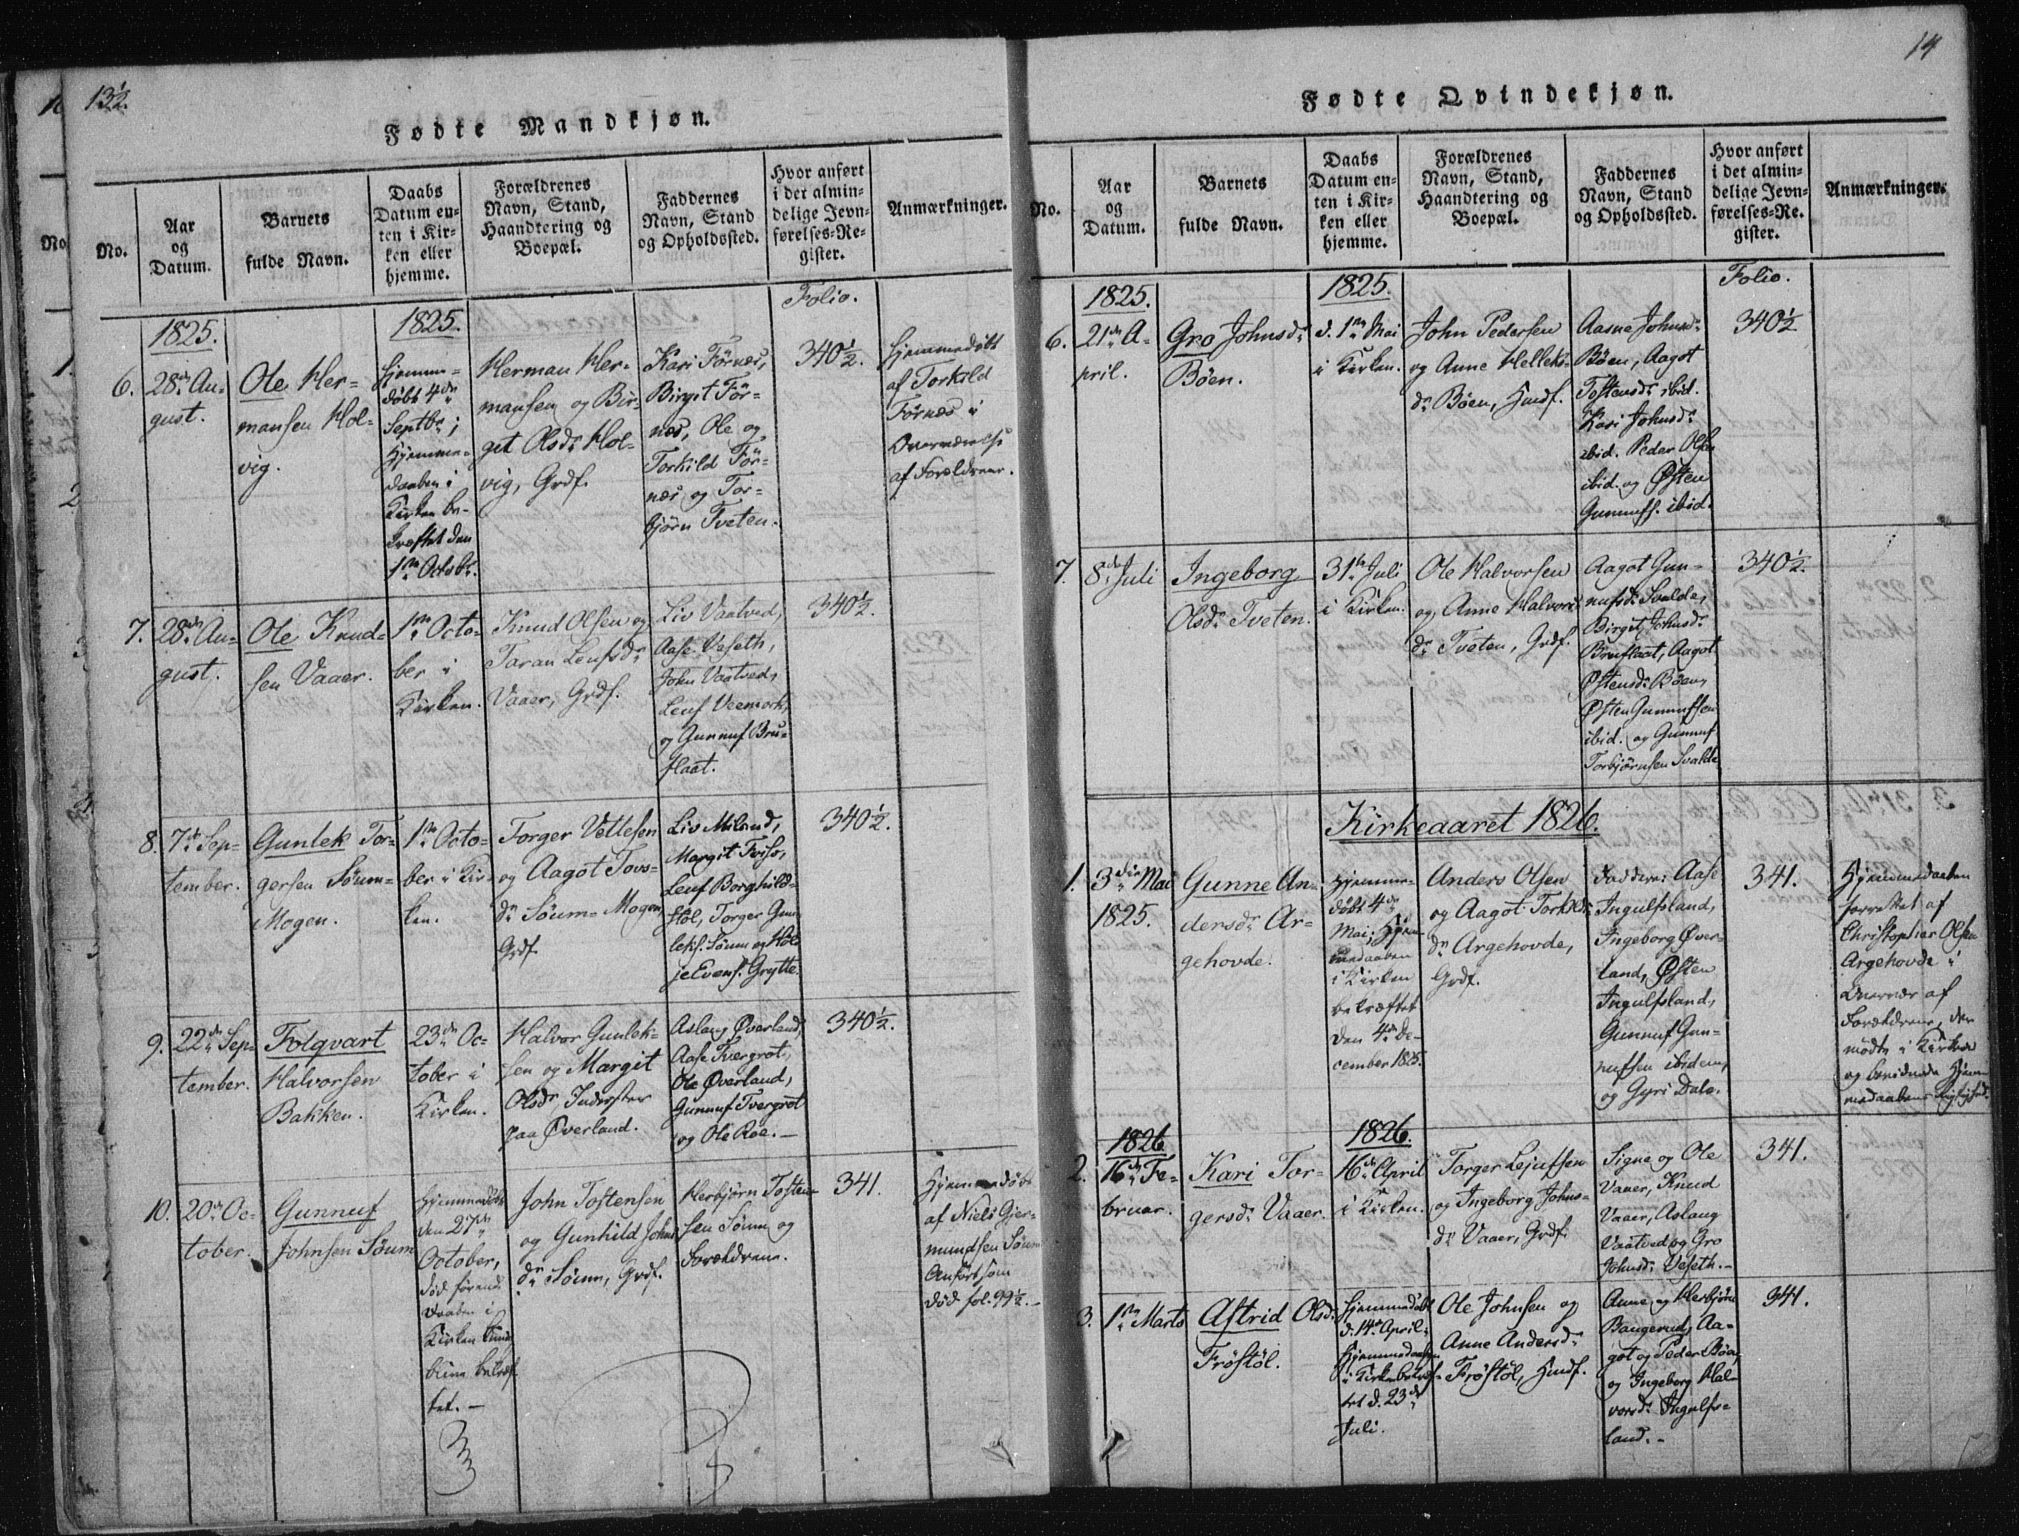 13½.
Fødte Mandkjøn.
No.
Aar
og
Datum.
Barnets
fulde Navn.
Daabs
Datum en-
ten i Kir-
ken eller
hjemme.
Forældrenes
Navn, Stand,
Haandtering og
Boepæl.
Faddernes
Navn, Stand
og Opholdssted.
Hvor anført
i det almin-
delige Jevn-
førelses-Re-
gister.
Anmærkninger.
Folio.
6.
1825.
28de Au-
gust.
Ole Her-
mansen Hol-
vig.
1825.
Hjemme-
døbt 4de
Septbr;
Hjemme-
daaben i
Kirken be-
kræftet den
1ste Octobr.
Herman Her-
mansen og Bir-
get Olsdr Hol-
vig, Grdf.
Kari Förnes,
Birget För-
nes, Ole og
Torkild För-
nes og Tor-
bjørn Tveten.
340½.
Hjemmedøbt
af Torkild
Förnes i
Overværelse
af Forældrene.
7.
28de Au-
gust.
Ole Knud-
sen Vaaer.
1ste Octo-
ber i
Kirken.
Knud Olsen og
Taran Leufsdr
Vaaer, Grdf.
Liv Vaatved,
Aase Veseth,
John Vaatved,
Leuf Veemork,
og Gunnuf Bru-
flaat.
340½.
8.
7de Sep-
tember.
Gunlek Tor-
gersen Søum-
Mogen.
1ste Octo-
ber i Kir-
ken.
Torger Vetlesen
og Aagot Tovs-
dr Søum-Mogen,
Grdf.
Liv Miland,
Margit Friso,
Leuf Borghild-
støl, Torger Gun-
leks. Søum og Høl-
je Evens. Grytte.
340½.
9.
22de Sep-
tember.
Folqvart
Halvorsen
Bakken.
23de Oc-
tober i
Kirken.
Halvor Gunlek-
sen og Margit
Olsdr Inderster
paa Øverland.
Aslaug Øverland,
Aase Tvergrot,
Ole Øverland,
Gunnuf Tvergrot
og Ole Roe.
340½.
10.
20de Oc-
tober.
Gunnuf
Johnsen Søum
Hjemmedøbt
den 27de
October,
død førend
Daaben i
Kirken kun-
de
bekræf-
tet.
John Tostensen
og Gunhild Johns-
dr Søum, Grdf.
Herbjørn Tosten-
sen Søum og
Forældrene.
341.
Hjemmedøbt
af Niels Gjer-
mundsen Søum
Anført som
død fol. 99½.
14
Fødte Qvindekjøn.
No.
Aar
og
Datum.
Barnets
fulde Navn.
Daabs
Datum en-
ten i Kir-
ken eller
hjemme.
Forældrenes
Navn, Stand,
Haandtering og
Boepæl.
Faddernes
Navn, Stand
og Opholdssted.
Hvor anført
i det almin-
delige Jevn-
førelses-Re-
gister.
Anmærkninger.
Folio.
6.
1825.
21de A-
pril.
Gro Johnsdr
Böen.
1825.
d. 1ste Mai
i Kirken.
John Pedersen
og Anne Helleks-
dr Böen, Husf.
Aasne Johnsdr
Böen, Aagot
Tostensdr ibid.
Kari Johnsdr
ibid. Peder Olsen
ibid. og Østen
Gunnufs. ibid.
340½
7.
8de Juli
Ingeborg
Olsdr Tveten.
31te Juli
i Kirken.
Ole Halvorsen
og Anne Halvors-
dr Tveten, Grdf.
Aagot Gun-
nufsdr Svalde,
Birget Johnsdr
Bruflaat, Aagot
Østensdr Böen,
Østen Gunnufsen
ibid. og Gunnuf
Torbjørnsen Svalde
340½.
Kirkeaaret 1826.
1.
3die Mai
1825.
Gunne An-
dersdr Ar-
gehovde.
Hjemme-
døbt 4de
Mai; Hjem-
medaaben
i Kirken
bekræftet
den 4de De-
cember 1825.
Anders Olsen
og Aagot Torkels-
dr Argehovde,
Grdf.
Faddere: Aase
Ingulfsland,
Ingeborg Øver-
land, Østen
Ingulfsland,
Gunnuf Gun-
nufsen ibidem,
og Gyri Dale.
341.
Hjemmedaaben
forrettet af
Christopher Olsen
Argehovde i
Overvær af
Forældrene, der
mødte i Kirken
og bevidnede Hjem-
medaabens Rigtighed.
2.
1826
16de Fe-
bruar.
Kari Tor-
gersdr Vaaer.
1826.
16de April
i Kirken.
Torger Lejufsen
og Ingeborg Johns-
dr Vaaer, Grdf.
Signe og Ole
Vaaer, Knud
Vaaer, Aslaug
Vaatved og Gro
Johnsdr Veseth.
341.
3.
1ste Marts
Astrid Olsdr
Fröstöl.
Hjemmedøbt
d. 14de April;
Hjemmedaaben
i Kirken bekræf-
tet d. 23de
Juli.
Ole Johnsen og
Anne Andersdr
Fröstöl, Husf.
Anne og Herbjørn
Baugerud, Aa-
got og Peder Böen,
og Ingeborg Hal-
vorsdr Ingulfs-
land.
341.